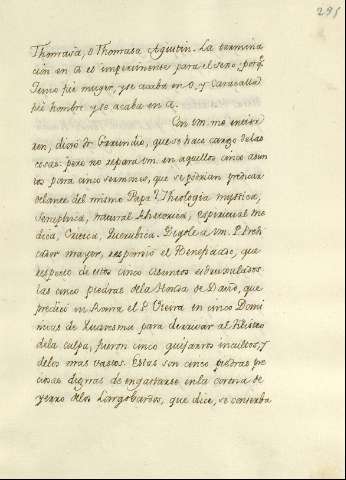 295
Thomasa, o Thomasa Agustin. La termina
cion en a es impertinente para el sexo, porq.e
Juno fué muger, y se acaba en o, y Caracalla
fué hombre y se acaba en a.
Con Vm. me entier
ren, dixo Fr. Gerundio, que se hace cargo de las
cosas: pero no repara Vm. en aquellos cinco asun
tos para cinco sermones, que se podrian predicar
delante del mismo Papa? Theologia mystica,
Seraphica, natural Rhetorica, espiritual Me
dica, Critica, Querubica. Digole a Vm. P. Predi
cador mayor, respondió el Beneficiado, que
respecto de estos cinco asuntos
las cinco piedras de la Honda de David, que
predicó en Roma el P. Vieira en cinco Domi
nicas de Quaresma para derrivar al Philisteo
dela culpa, fueron cinco guijarros incultos, y
delos mas vastos. Estas son cinco piedras pre
ciosas dignas de engastarse en la corona de
yerro delos Longobardos, que dice, se conserba